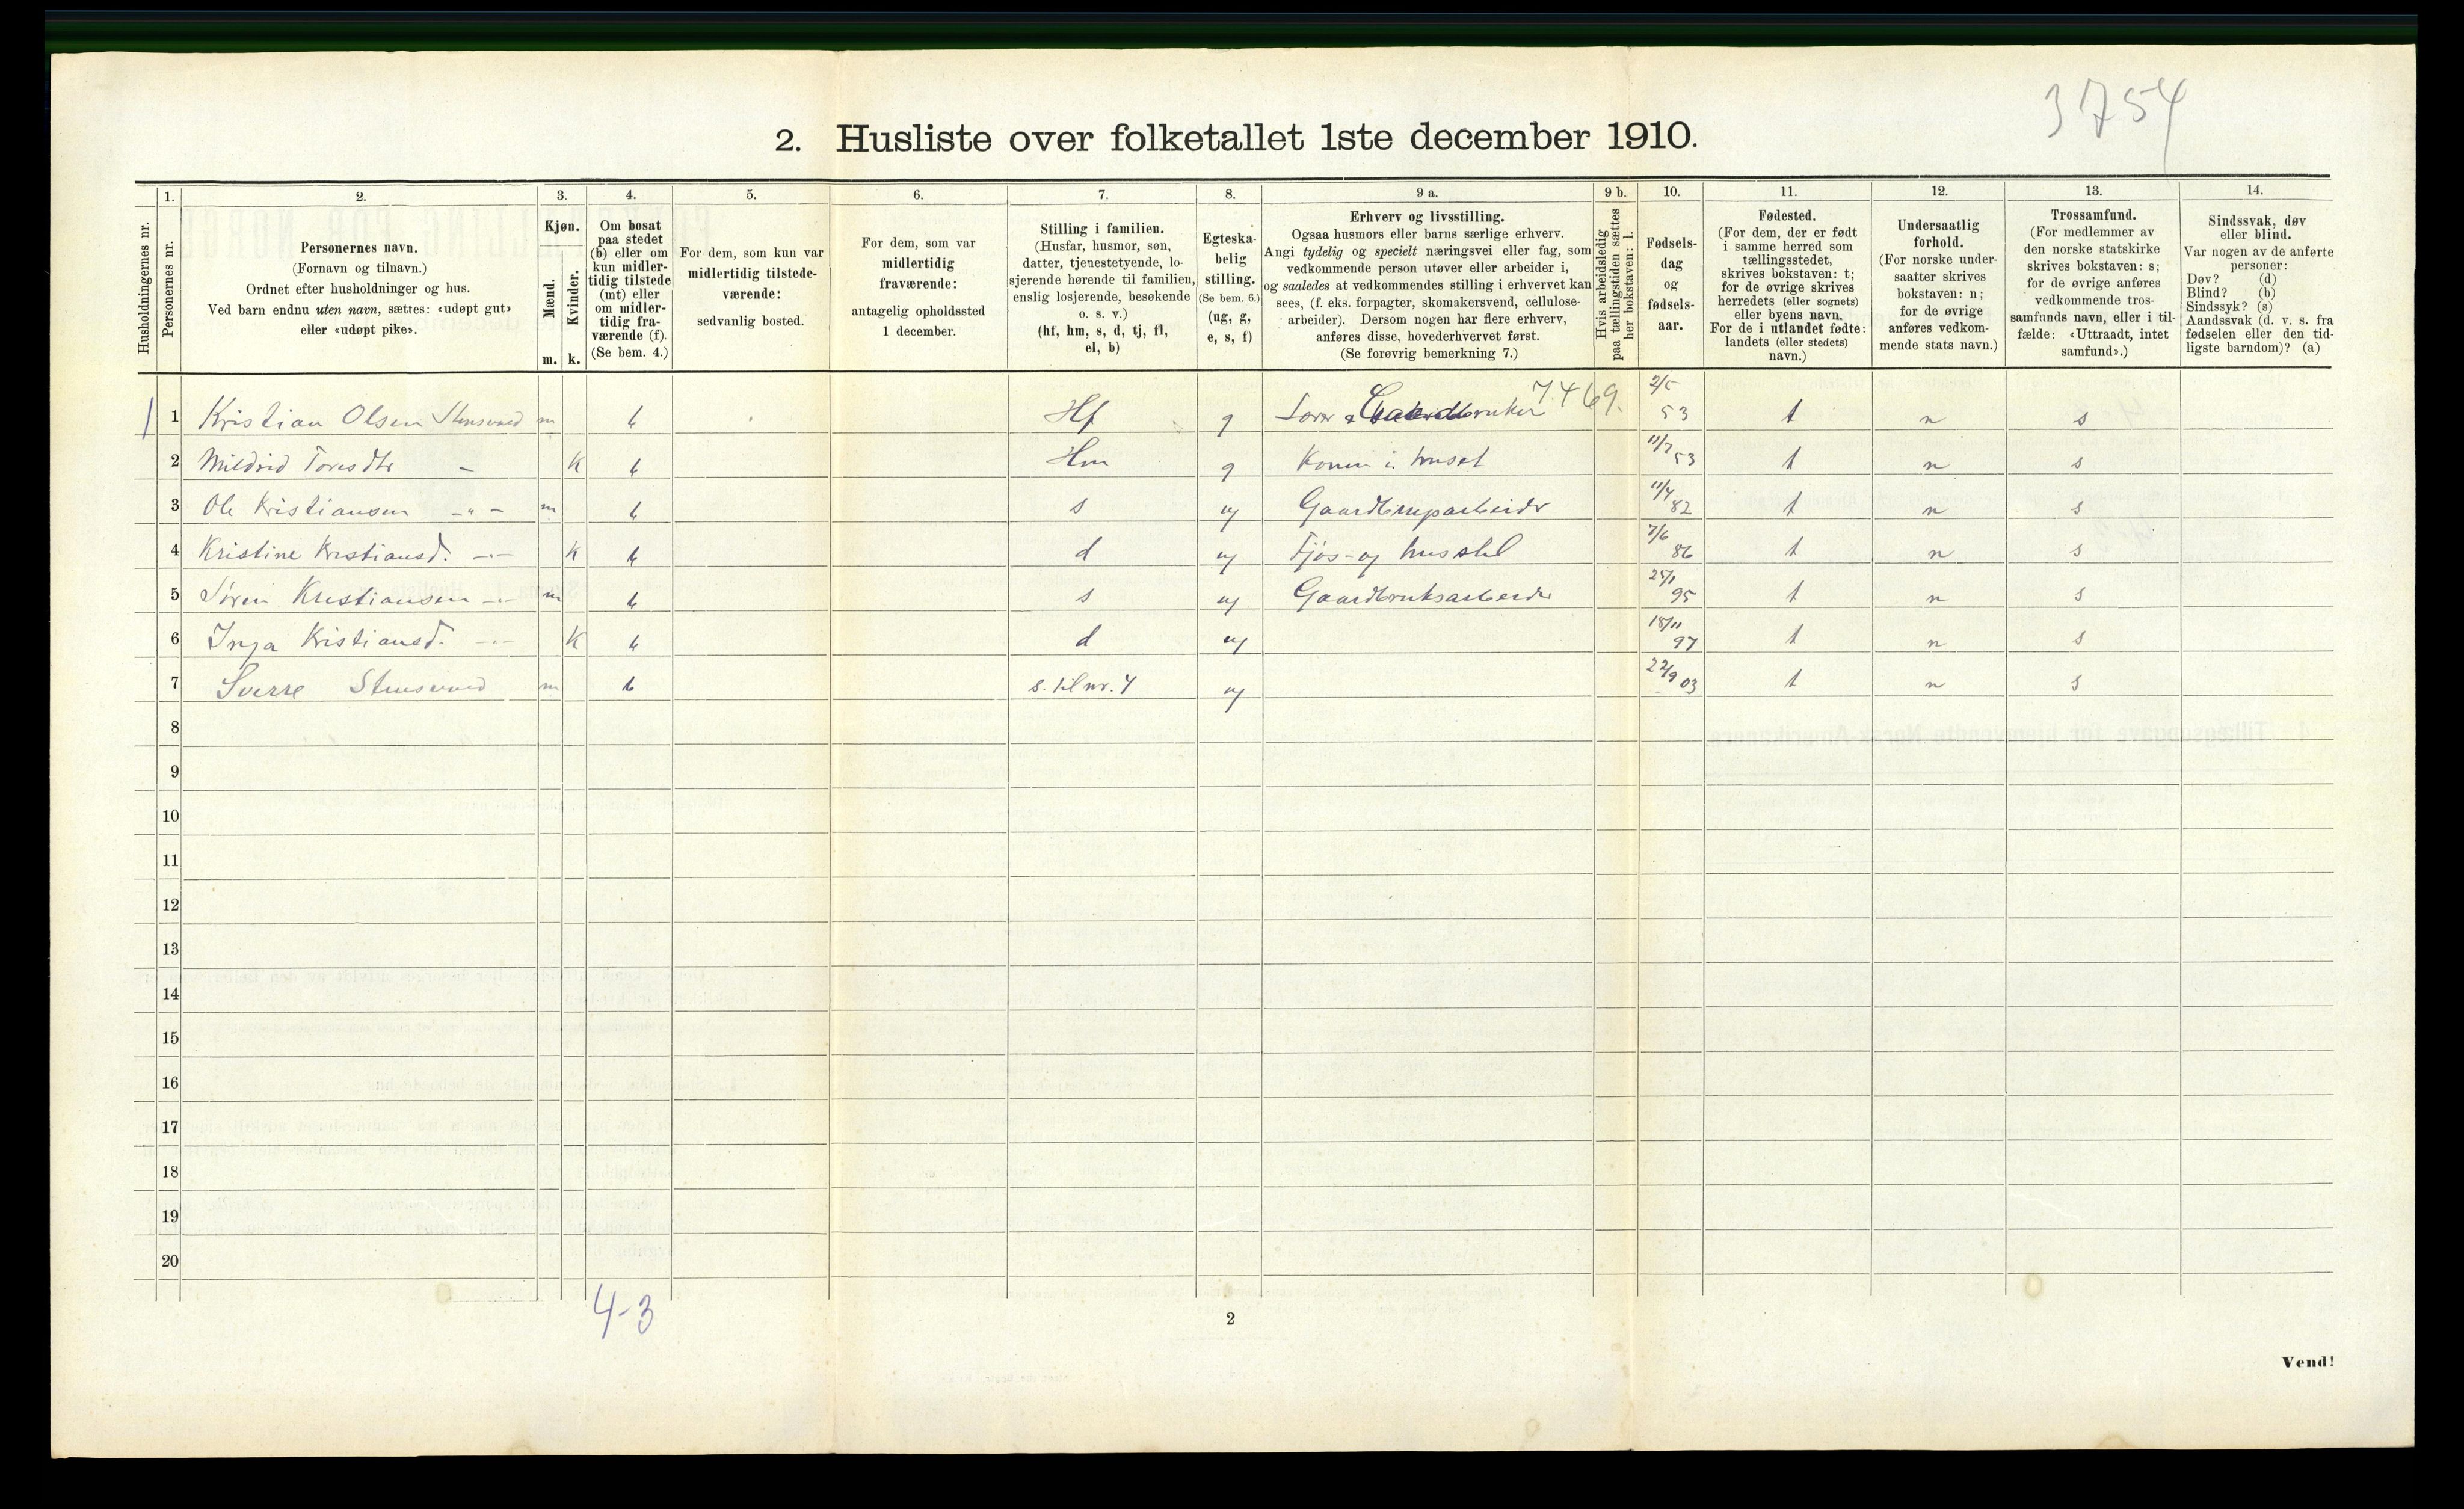 3754
2. Husliste over folketallet 1ste december 1910.
1. 2. 3. 4. 5. 6. 7. 8. 9 a. 9 b. 10. 11. 12. 13. 14.
Husholdningernes nr.
Personernes nr.
Personernes navn.
(Fornavn og tilnavn.)
Ordnet efter husholdninger og hus.
Ved barn endnu uten navn, sættes: «udøpt gut»
eller «udøpt pike».
Kjøn.
Mænd.
Kvinder.
m. k.
Om bosat
paa stedet
(b) eller om
kun midler-
tidig tilstede
(mt) eller
om midler-
tidig fra-
værende (f).
(Se bem. 4.)
For dem, som kun var
midlertidig tilstede-
værende:
sedvanlig bosted.
For dem, som var
midlertidig
fraværende:
antagelig opholdssted
1 december.
Stilling i familien.
(Husfar, husmor, søn,
datter, tjenestetyende, lo-
sjerende hørende til familien,
enslig losjerende, besøkende
o. s. v.)
(hf, hm, s, d, tj, fl,
el, b)
Egteska-
belig
stilling.
(Se bem. 6.)
(ug, g,
e, s, f)
Erhverv og livsstilling.
Ogsaa husmors eller barns særlige erhverv.
Angi tydelig og specielt næringsvei eller fag, som
vedkommende person utøver eller arbeider i,
og saaledes at vedkommendes stilling i erhvervet kan
sees, (f. eks. forpagter, skomakersvend, cellulose-
arbeider). Dersom nogen har flere erhverv,
anføres disse, hovederhvervet først.
(Se forøvrig bemerkning 7.)
Hvis arbeidsledig
paa tællingstiden sættes
her bokstaven: l.
Fødsels-
dag
og
fødsels-
aar.
Fødested.
(For dem, der er født
i samme herred som
tællingsstedet,
skrives bokstaven: t;
for de øvrige skrives
herredets (eller sognets)
eller byens navn.
For de i utlandet fødte:
landets (eller stedets)
navn.)
Undersaatlig
forhold.
(For norske under-
saatter skrives
bokstaven: n;
for de øvrige
anføres vedkom-
mende stats navn.)
Trossamfund.
(For medlemmer av
den norske statskirke
skrives bokstaven: s;
for de øvrige anføres
vedkommende tros-
samfunds navn, eller i til-
fælde: «Uttraadt, intet
samfund».)
Sindssvak, døv
eller blind.
Var nogen av de anførte
personer:
Døv? (d)
Blind? (b)
Sindssyk? (s)
Aandssvak (d. v. s. fra
fødselen eller den tid-
ligste barndom)? (a)
1 1 Kristian Olsen m b Hf g Gaardbruker 7.469. 2/5 53 t n s
2 Mildrid Toresdtr - k b Hm g Konen i huset 11/7 53 t n s
3 Ole Kristiansen -"- m b s ug 11/4 82 t n s
4 Kristine Kristiansd. -"- k b d ug Fjøs- og husstel 7/6 86 t n s
5 Søren Kristiansen -"- m b s ug Gaardbruksarbeider 25/1 95 t n s
6 Inga Kristiansd. -"- k b d ug 18/11 97 t n s
7 Sverre m b s. til nr. 4 ug 22/9 03 t n s
8
9
10
11
12
13
14
15
16
17
18
19
20
4-3
2
Vend!